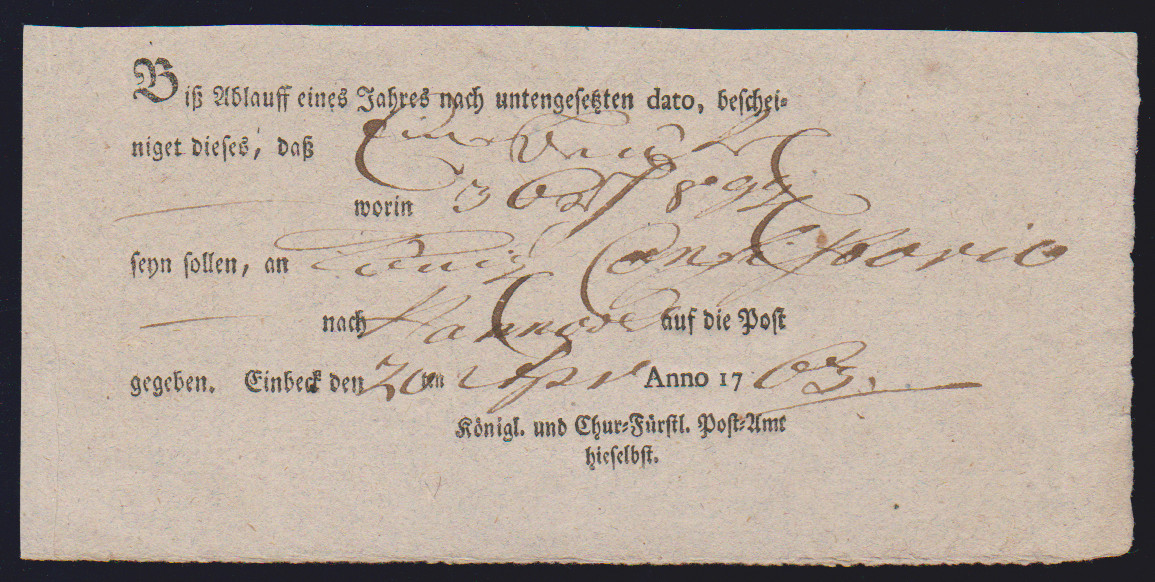 Biß Ablauff eines Jahres nach untengesetzten dato, beschei-
niget dieses, daß Ein
worin 3
seyn sollen, an Königl Consistorio
nach Hannover auf die Post
gegeben. Einbeck den 20 ten Apr Anno 1763.
Königl. und Chur-Fürstl. Post-Amt
hieselbst.